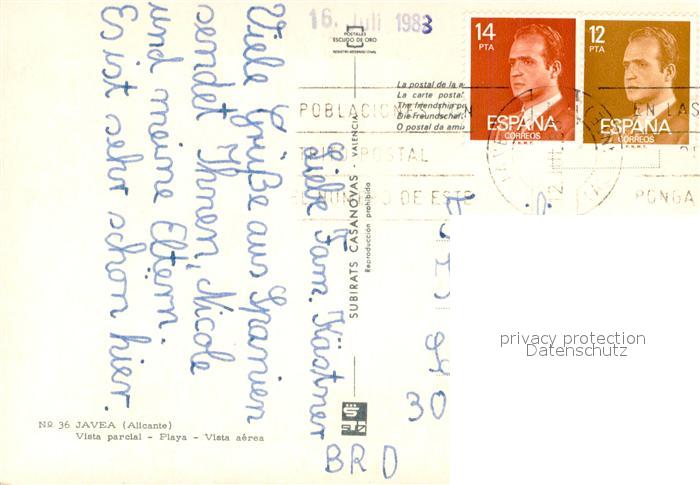 16. Juli 1983
POSTALES
ESCUDO DE ORO
14
PTA
ESPAÑA
CORREOS
F.N.M.T.
12
PTA
ESPAÑA
CORREOS
F.N.M.T.
La postal de la a
La carte postal
The friendship po
Die Freundschaf
O postal da ami
POBLACIONES
EN LAS
POSTAL
DE ESTE
PONGA
Liebe Fam. Kästner
Viele Grüße aus Spanien
sendet Ihnen, Nicole
und meine Eltern.
Es ist sehr schön hier.
30
BRD
SUBIRATS CASANOVAS - VALENCIA
Reproducción prohibida
privacy protection
Datenschutz
Nº 36 JAVEA (Alicante)
Vista parcial - Playa - Vista aérea